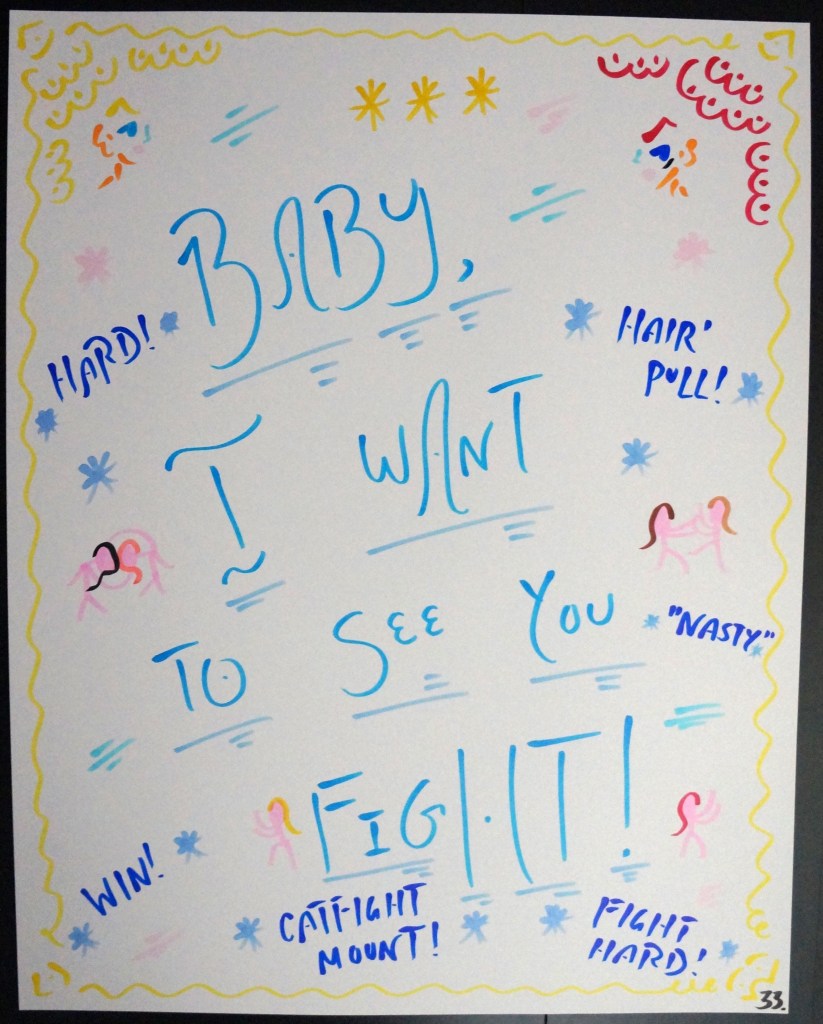 BABY,
HARD!
HAIR'
PULL!
I WANT
TO SEE YOU
"NASTY"
FIGHT!
WIN!
CATFIGHT
MOUNT!
FIGHT
HARD!
33.